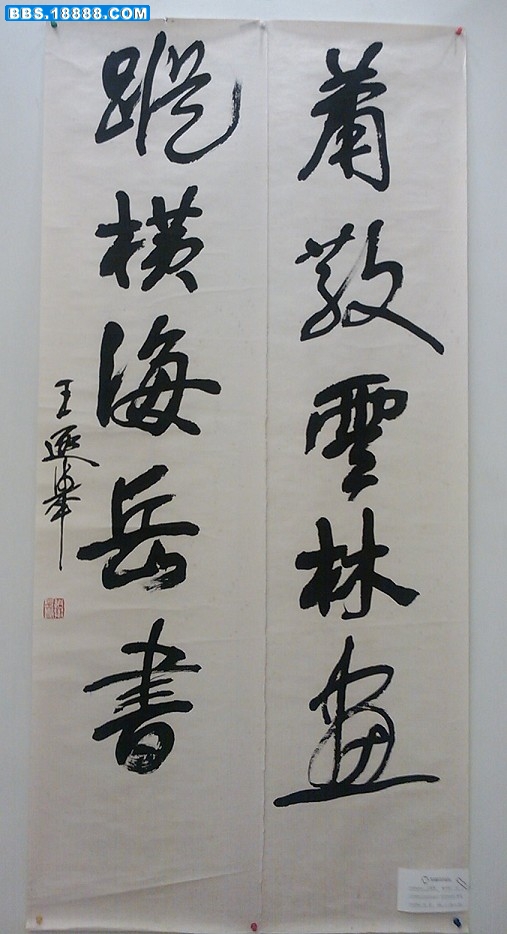 BBS.18888.COM
蕭散雲林畫
蹤橫海岳書
王遐舉